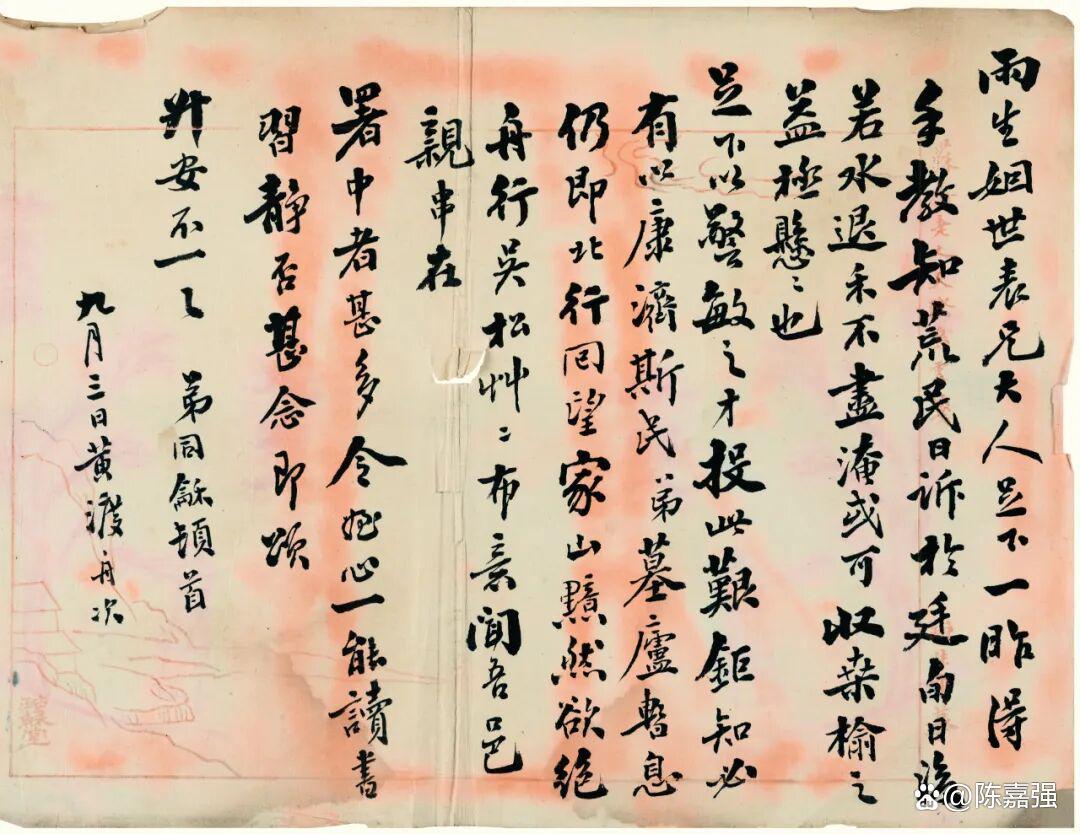 雨生姻世表兄大人足下一昨得
手教知荒民日訴於廷旬日後
若水退禾不盡淹或可收桑榆之
益極懸〻也
足下以警敏之才投此艱鉅知必
有以康濟斯民弟墓廬暫息
仍即北行囘望家山黯然欲絕
舟行吳松艸〻布意聞吾邑
親串在
署中者甚多令姪心一能讀書
習靜否甚念即頌
升安不一〻 弟同龢頓首
九月三日黃渡舟次
@陈嘉强